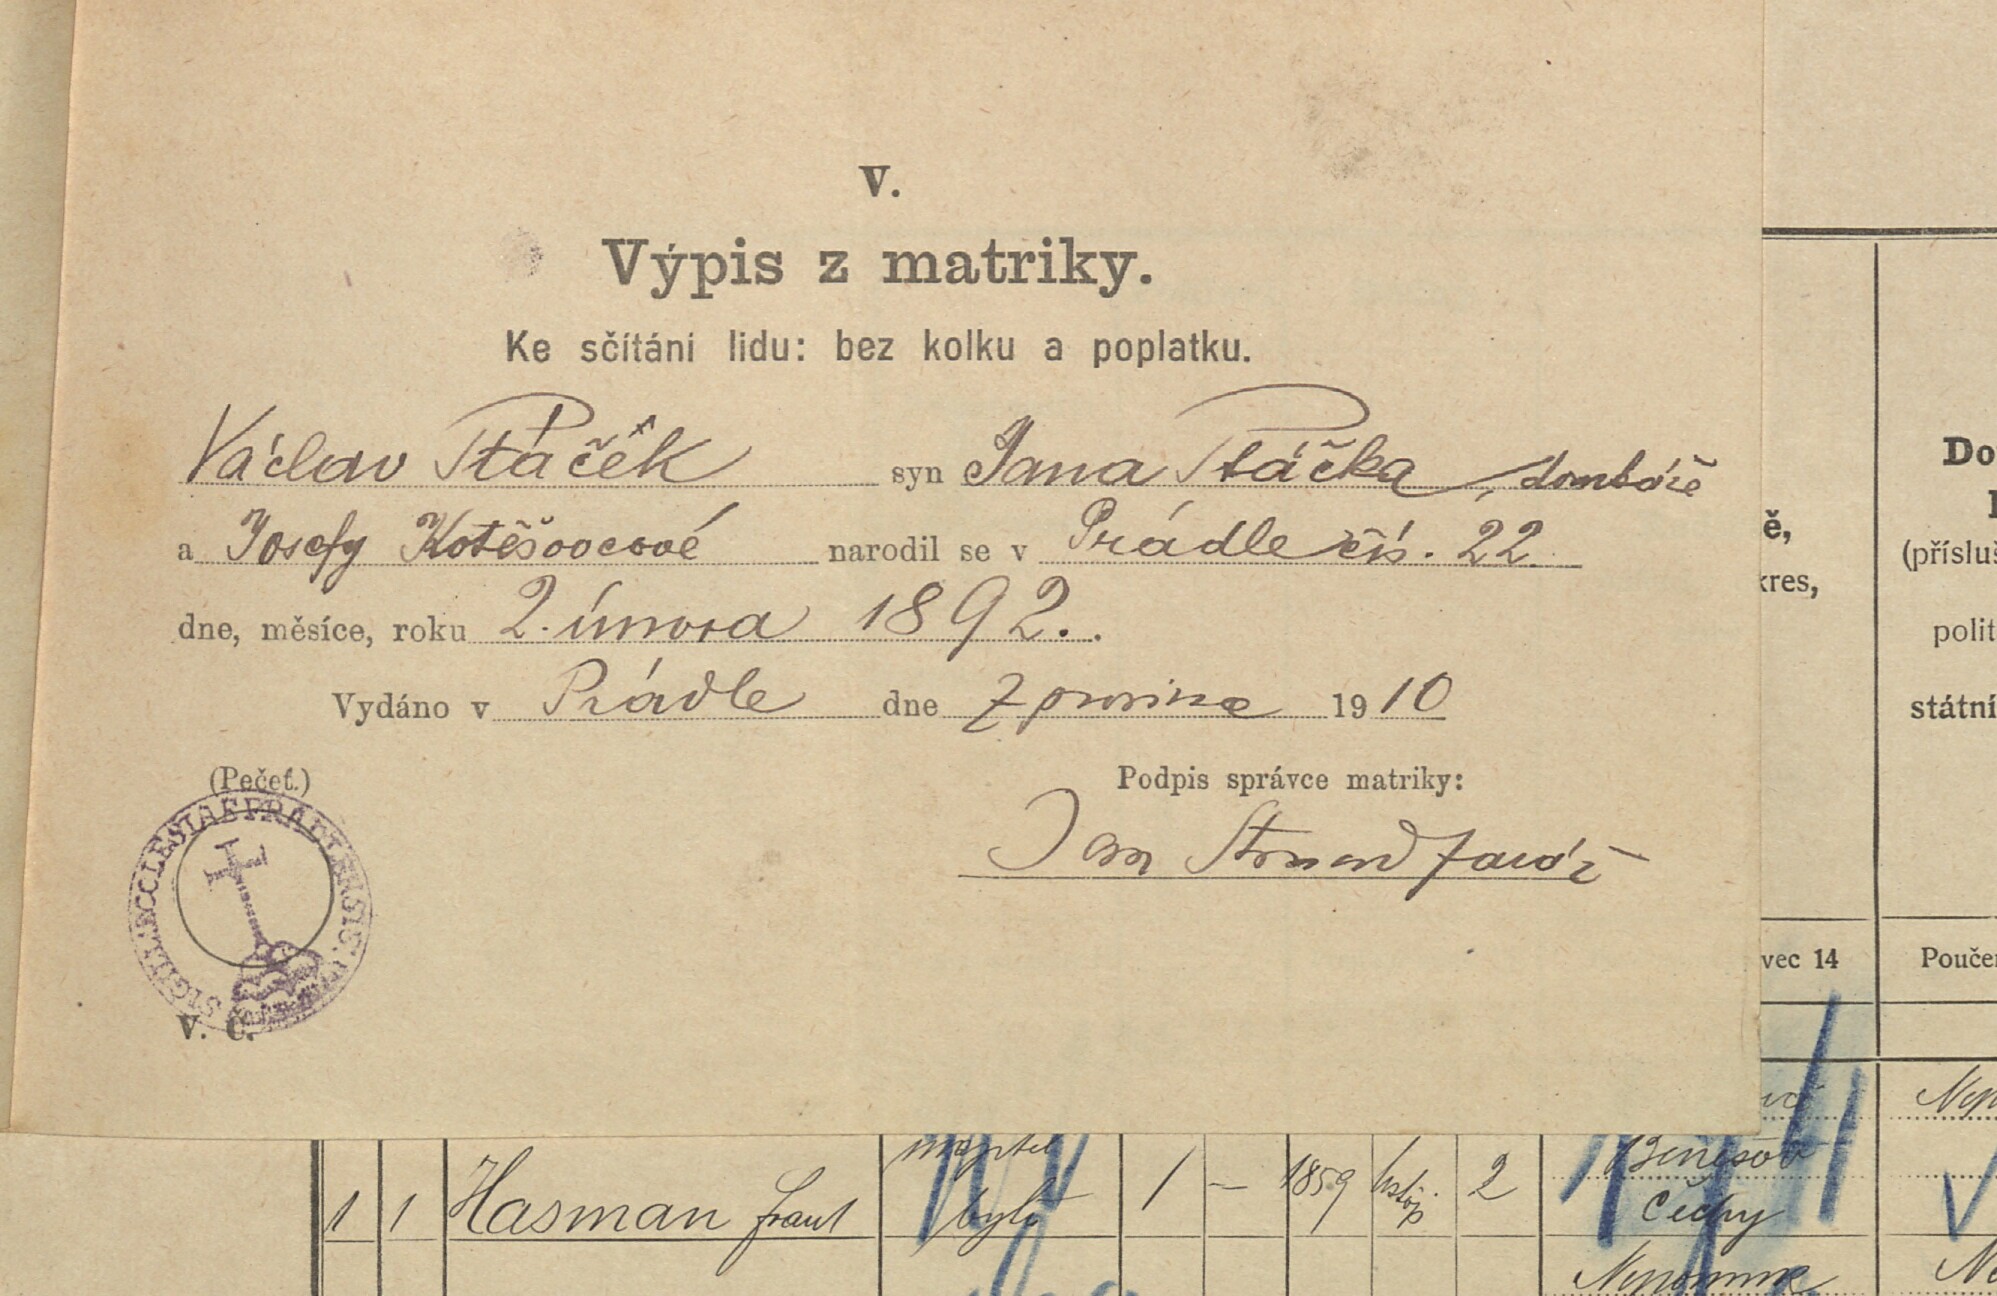 V.
Výpis z matriky.
Ke sčítání lidu: bez kolku a poplatku.
Václav Ptáček syn Jana Ptáčka, domkáře
a Josefy Kotěšovcové narodil se v Prádle čís. 22.
dne, měsíce, roku 2. února 1892.
Vydáno v Prádle dne 7 prosince 1910
(Pečeť.)
Podpis správce matriky:
Jan farář
SIGILL. ECCLESIAE PRADLENSIS
V. Č.
Do
ě,
(přísluš
kres,
polit
státní
vec 14
Poučen
majitel
Benešov
1 1 Hasman Frant bytu 1 – 1859 listop. 2 Čechy
Nepomuk
Ne